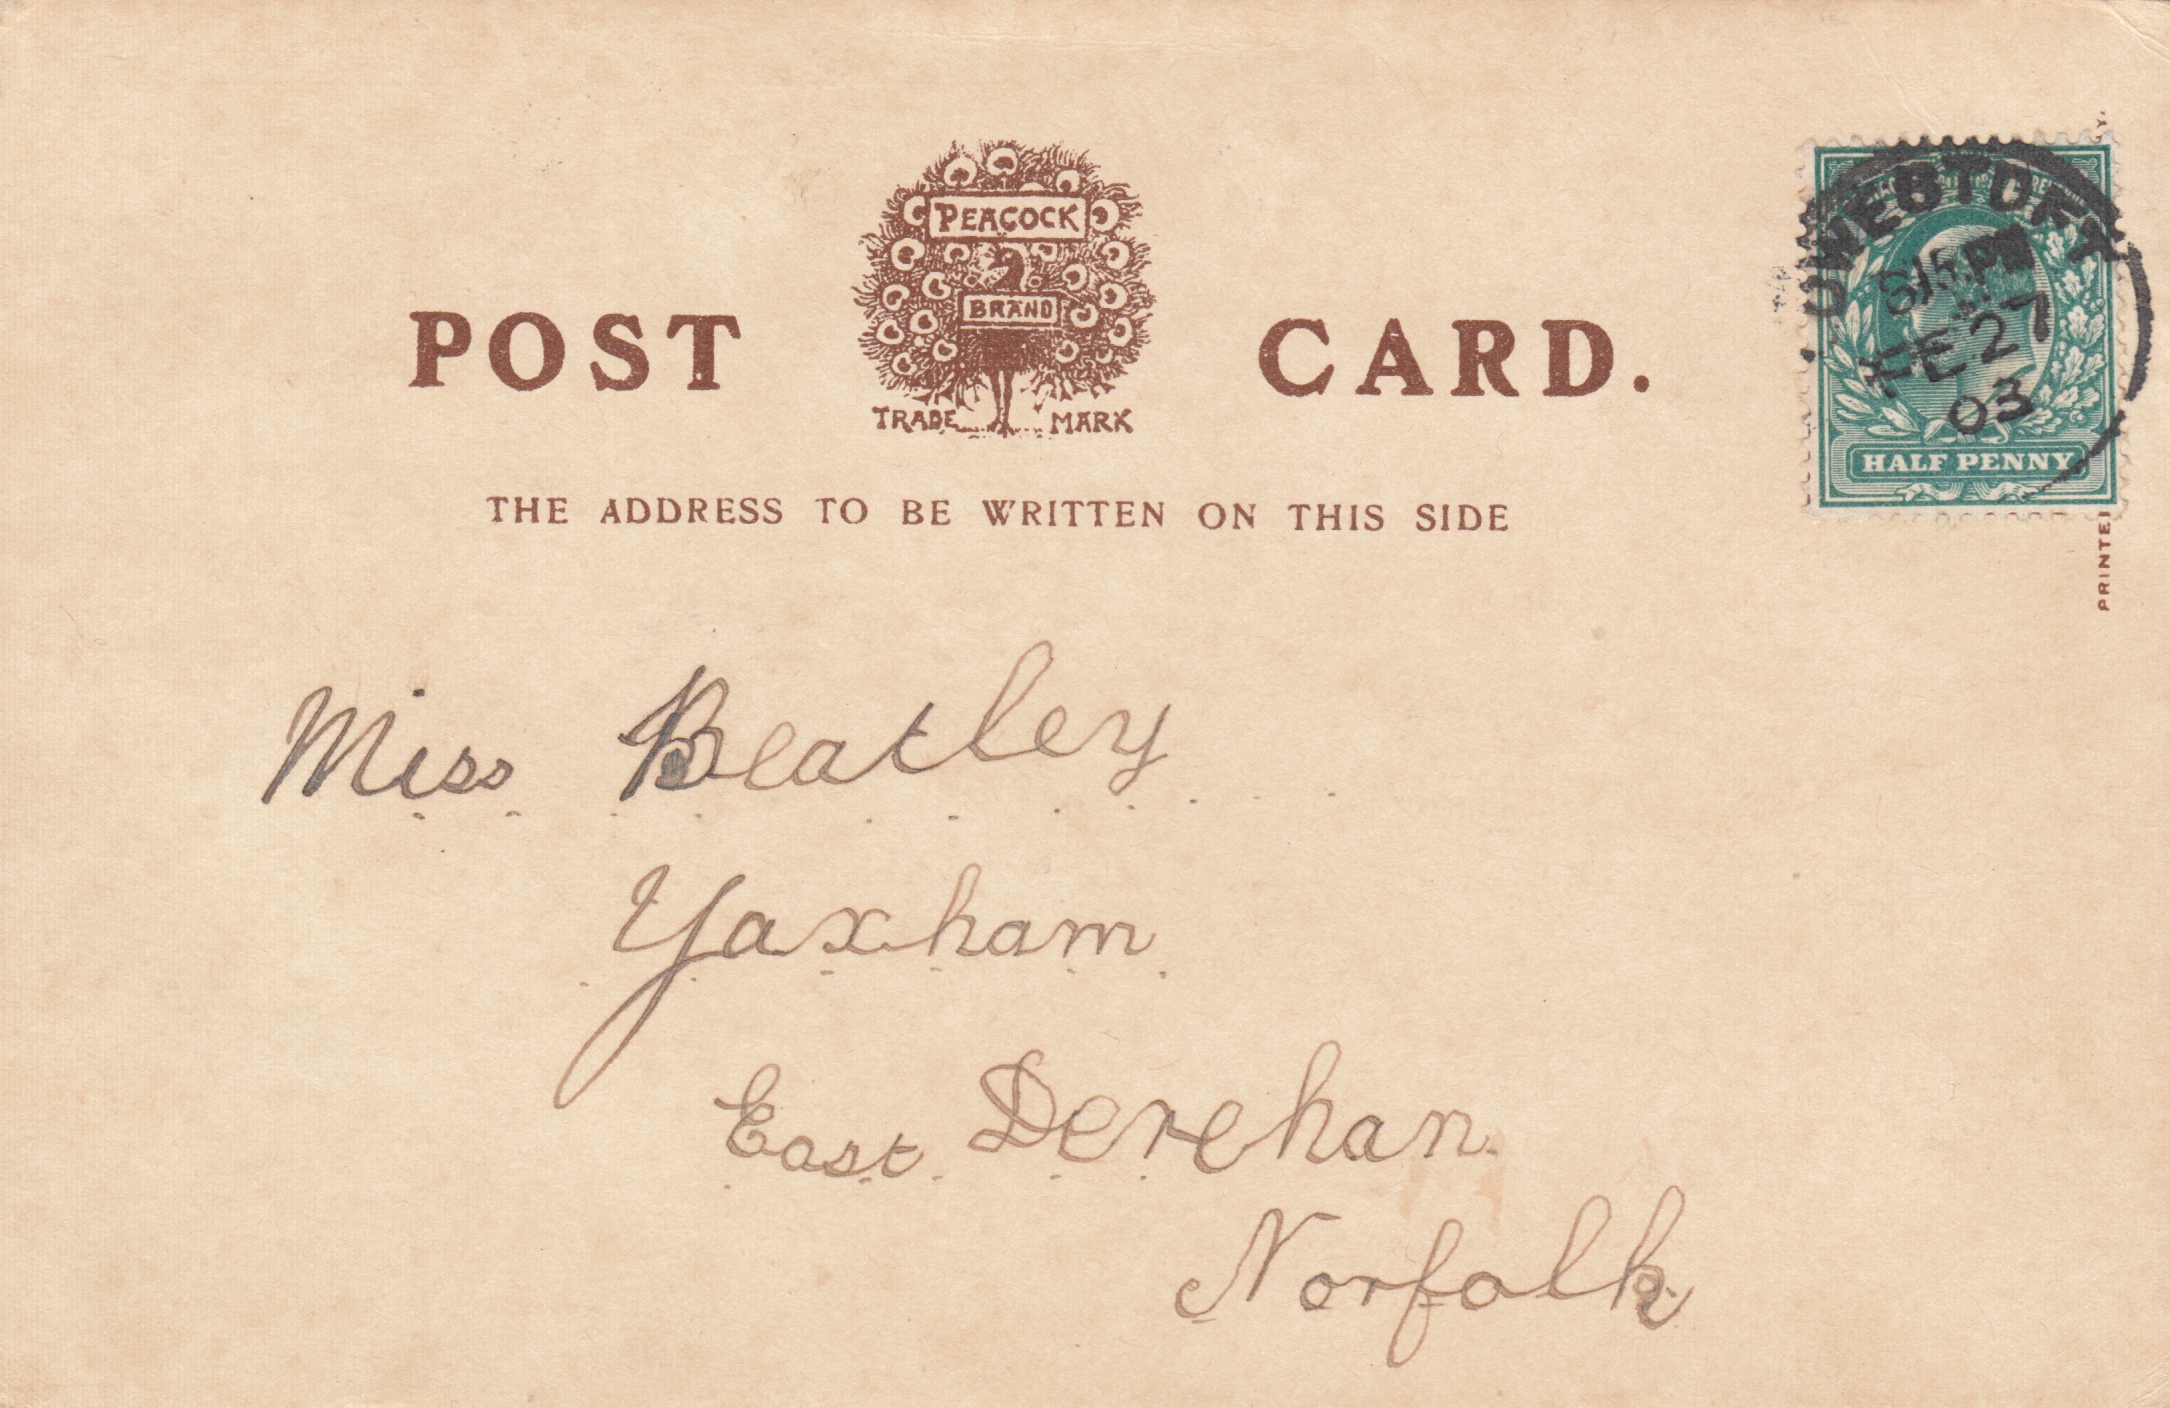 PEACOCK
BRAND
POST CARD.
TRADE MARK
THE ADDRESS TO BE WRITTEN ON THIS SIDE
LOWESTOFT
8.15 PM
FE 27
03
HALF PENNY
PRINTE
Miss Beatley
Yaxham
East Derehan
Norfolk